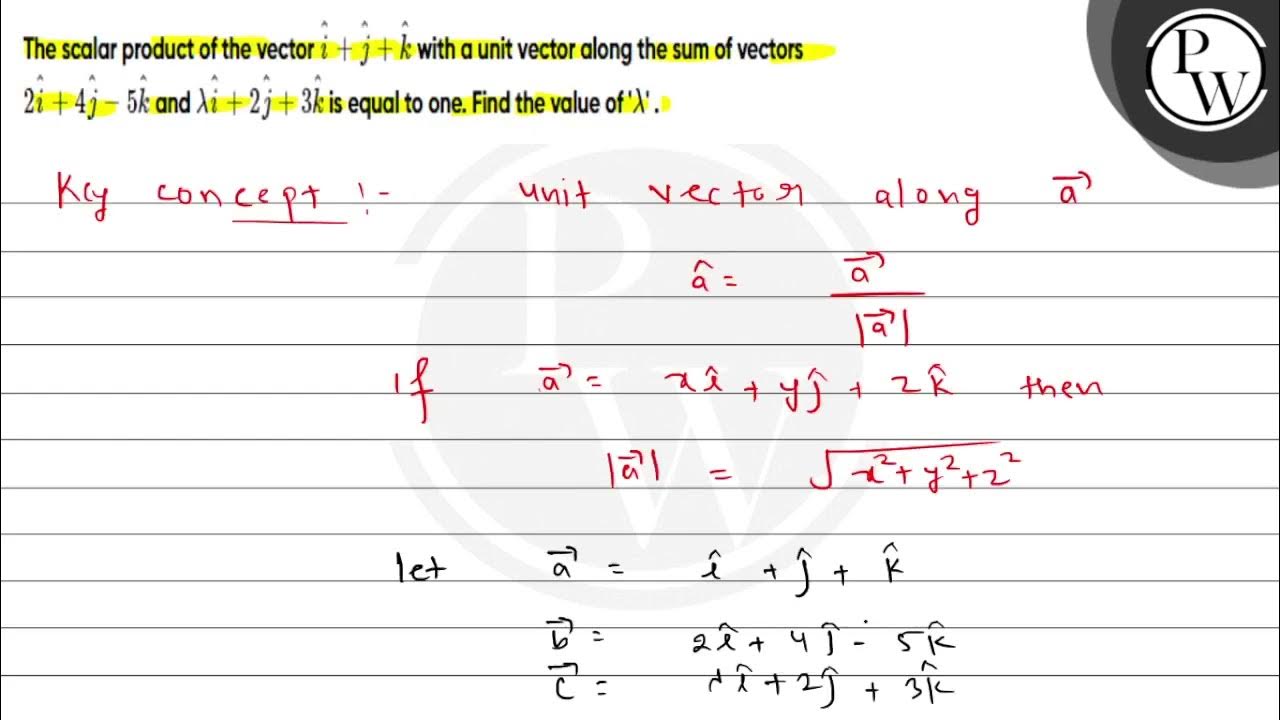 The scalar product of the vector î + ĵ + k̂ with a unit vector along the sum of vectors
2î + 4ĵ − 5k̂ and λî + 2ĵ + 3k̂ is equal to one. Find the value of 'λ'.
PW
Key concept :- unit vector along a⃗
â = a⃗ / |a⃗|
If a⃗ = xî + yĵ + zk̂ then
|a⃗| = √(x² + y² + z²)
let a⃗ = î + ĵ + k̂
b⃗ = 2î + 4ĵ - 5k̂
c⃗ = λî + 2ĵ + 3k̂